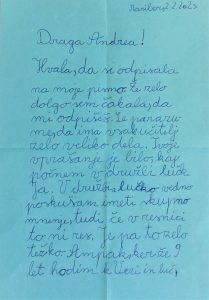 Maribor, 2.2.2023
Draga Andrea!
Hvala, da si odpisala
na moje pismo že zelo
dolgo sem čakala, da
mi odpišeš. Že
me, da ima vsak učitelj
zelo veliko dela. Svoje
vprašanje je bilo, kaj
počnem v družbi ljudi
Ja. V družbi vedno
poskušam imeti skupno
mnenje, tudi če v resnici
to ni res. Je pa to zelo
težko Ampak že 9
let hodim k